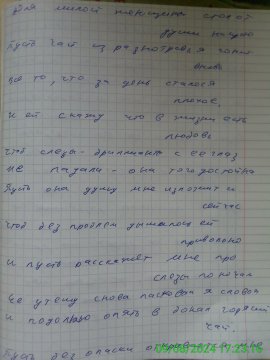 Для милой женщины стол от
души накрою
Пусть чай из разнотравья гонит
вновь
Все то, что за день сталося
плохое,
И ей скажу что в жизни есть
любовь
Чтоб слеза-бриллиант с ее глаз
не падали - она того достойна
Пусть она душу мне изложит и
сейчас
Чтоб без проблем дышалось ей
привольно
И пусть расскажет мне про
слезы по ночам
Ее утешу снова ласковым я словом
И подолью опять в бокал горячий
чай,
Пусть без опаски мне
09/08/2024 17:23:16